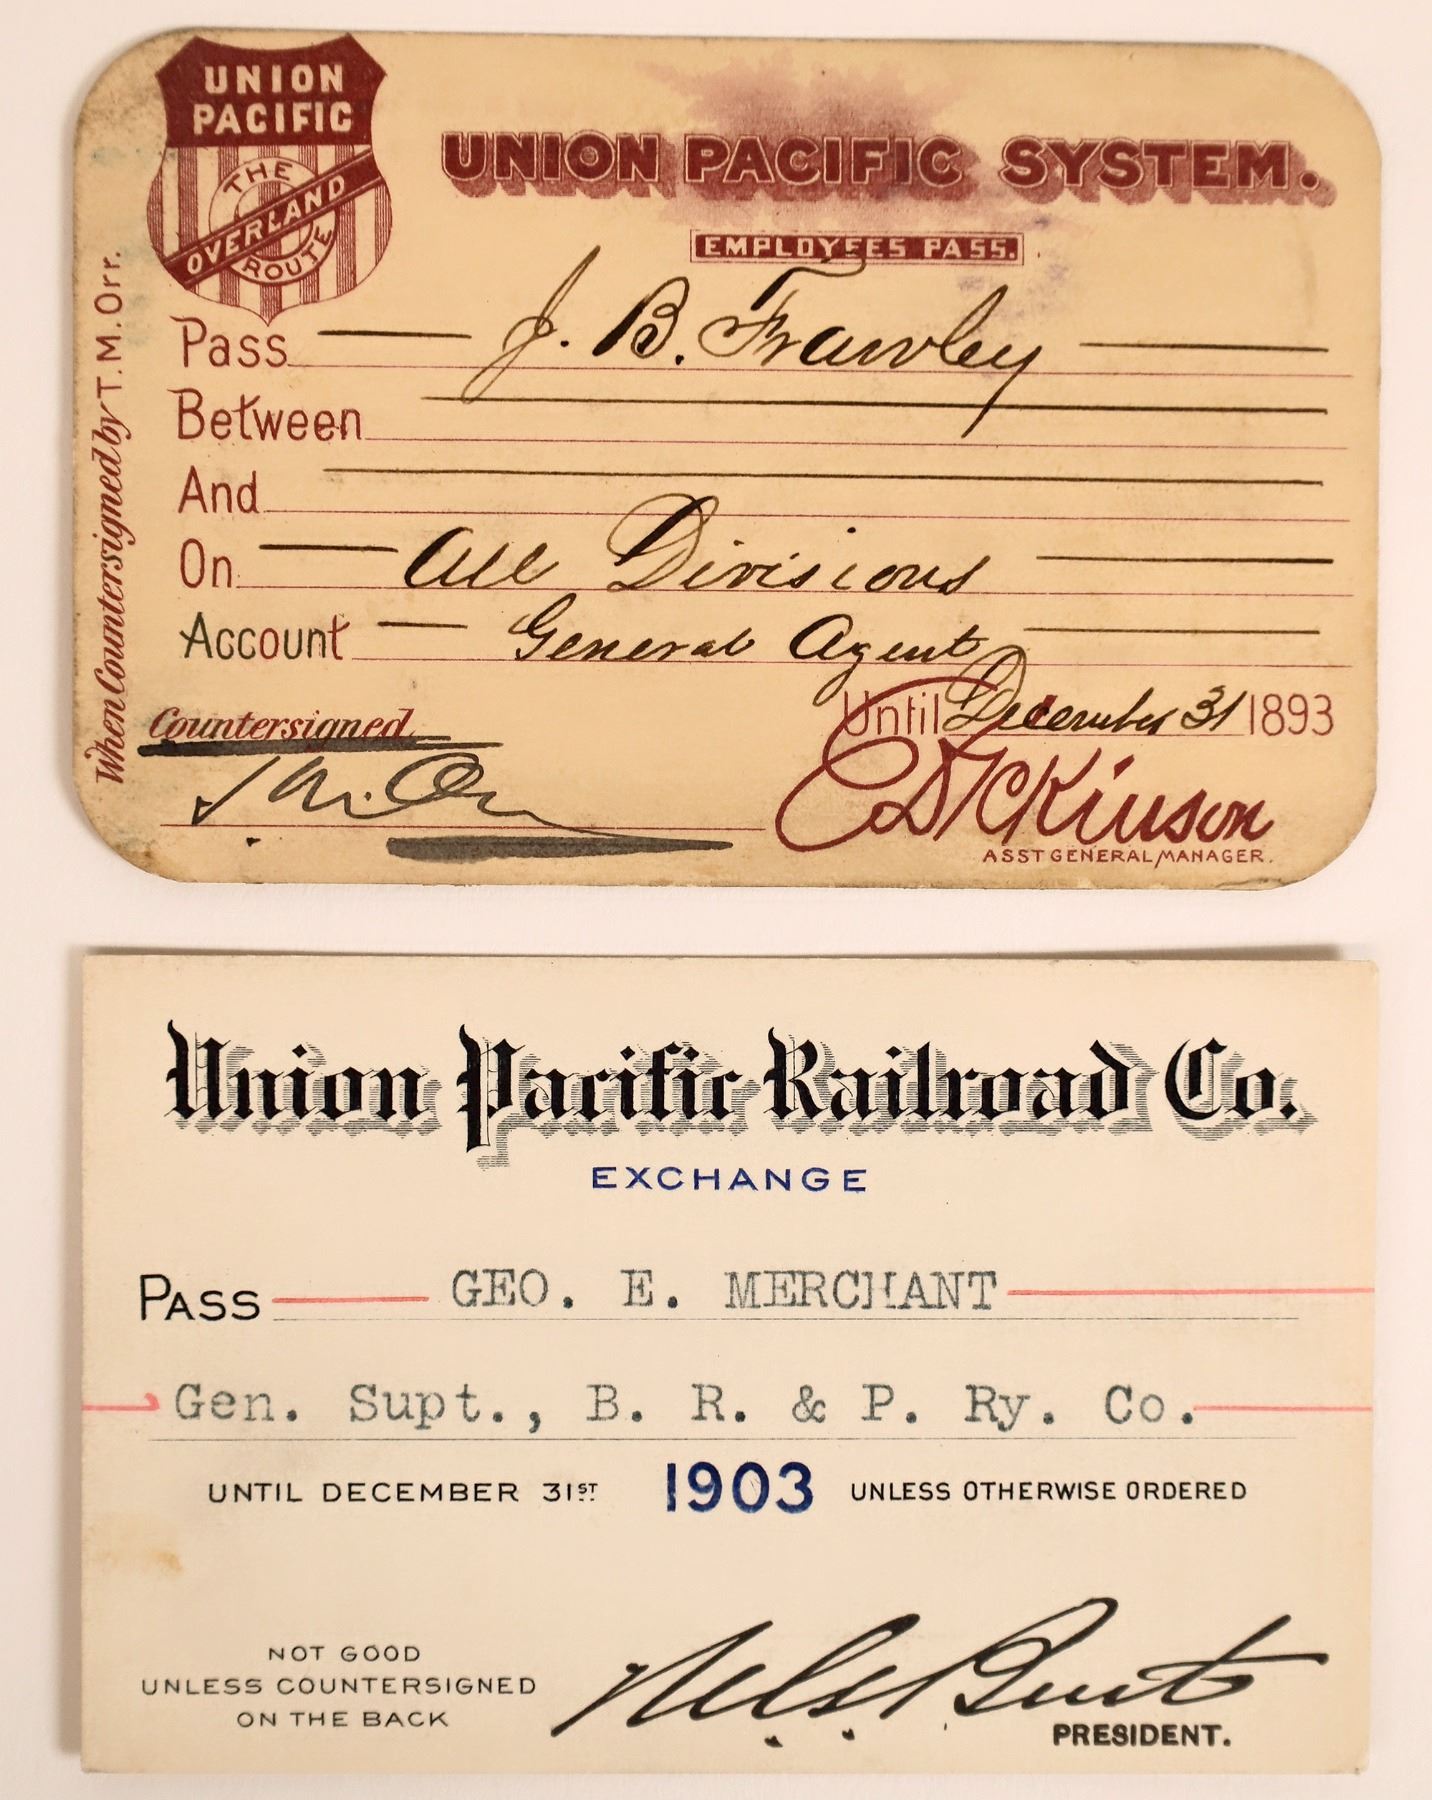 UNION
PACIFIC
THE
OVERLAND
ROUTE
UNION PACIFIC SYSTEM.
EMPLOYEES PASS.
Pass J. B. Frawley
Between
And
On All Divisions
Account General Agent
Until December 31 1893
Countersigned
T. M. Orr
E Dickinson
ASST GENERAL MANAGER.
When Countersigned by T. M. Orr.
Union Pacific Railroad Co.
EXCHANGE
PASS GEO. E. MERCHANT
Gen. Supt., B. R. & P. Ry. Co.
UNTIL DECEMBER 31ST 1903 UNLESS OTHERWISE ORDERED
NOT GOOD
UNLESS COUNTERSIGNED
ON THE BACK
Burt
PRESIDENT.